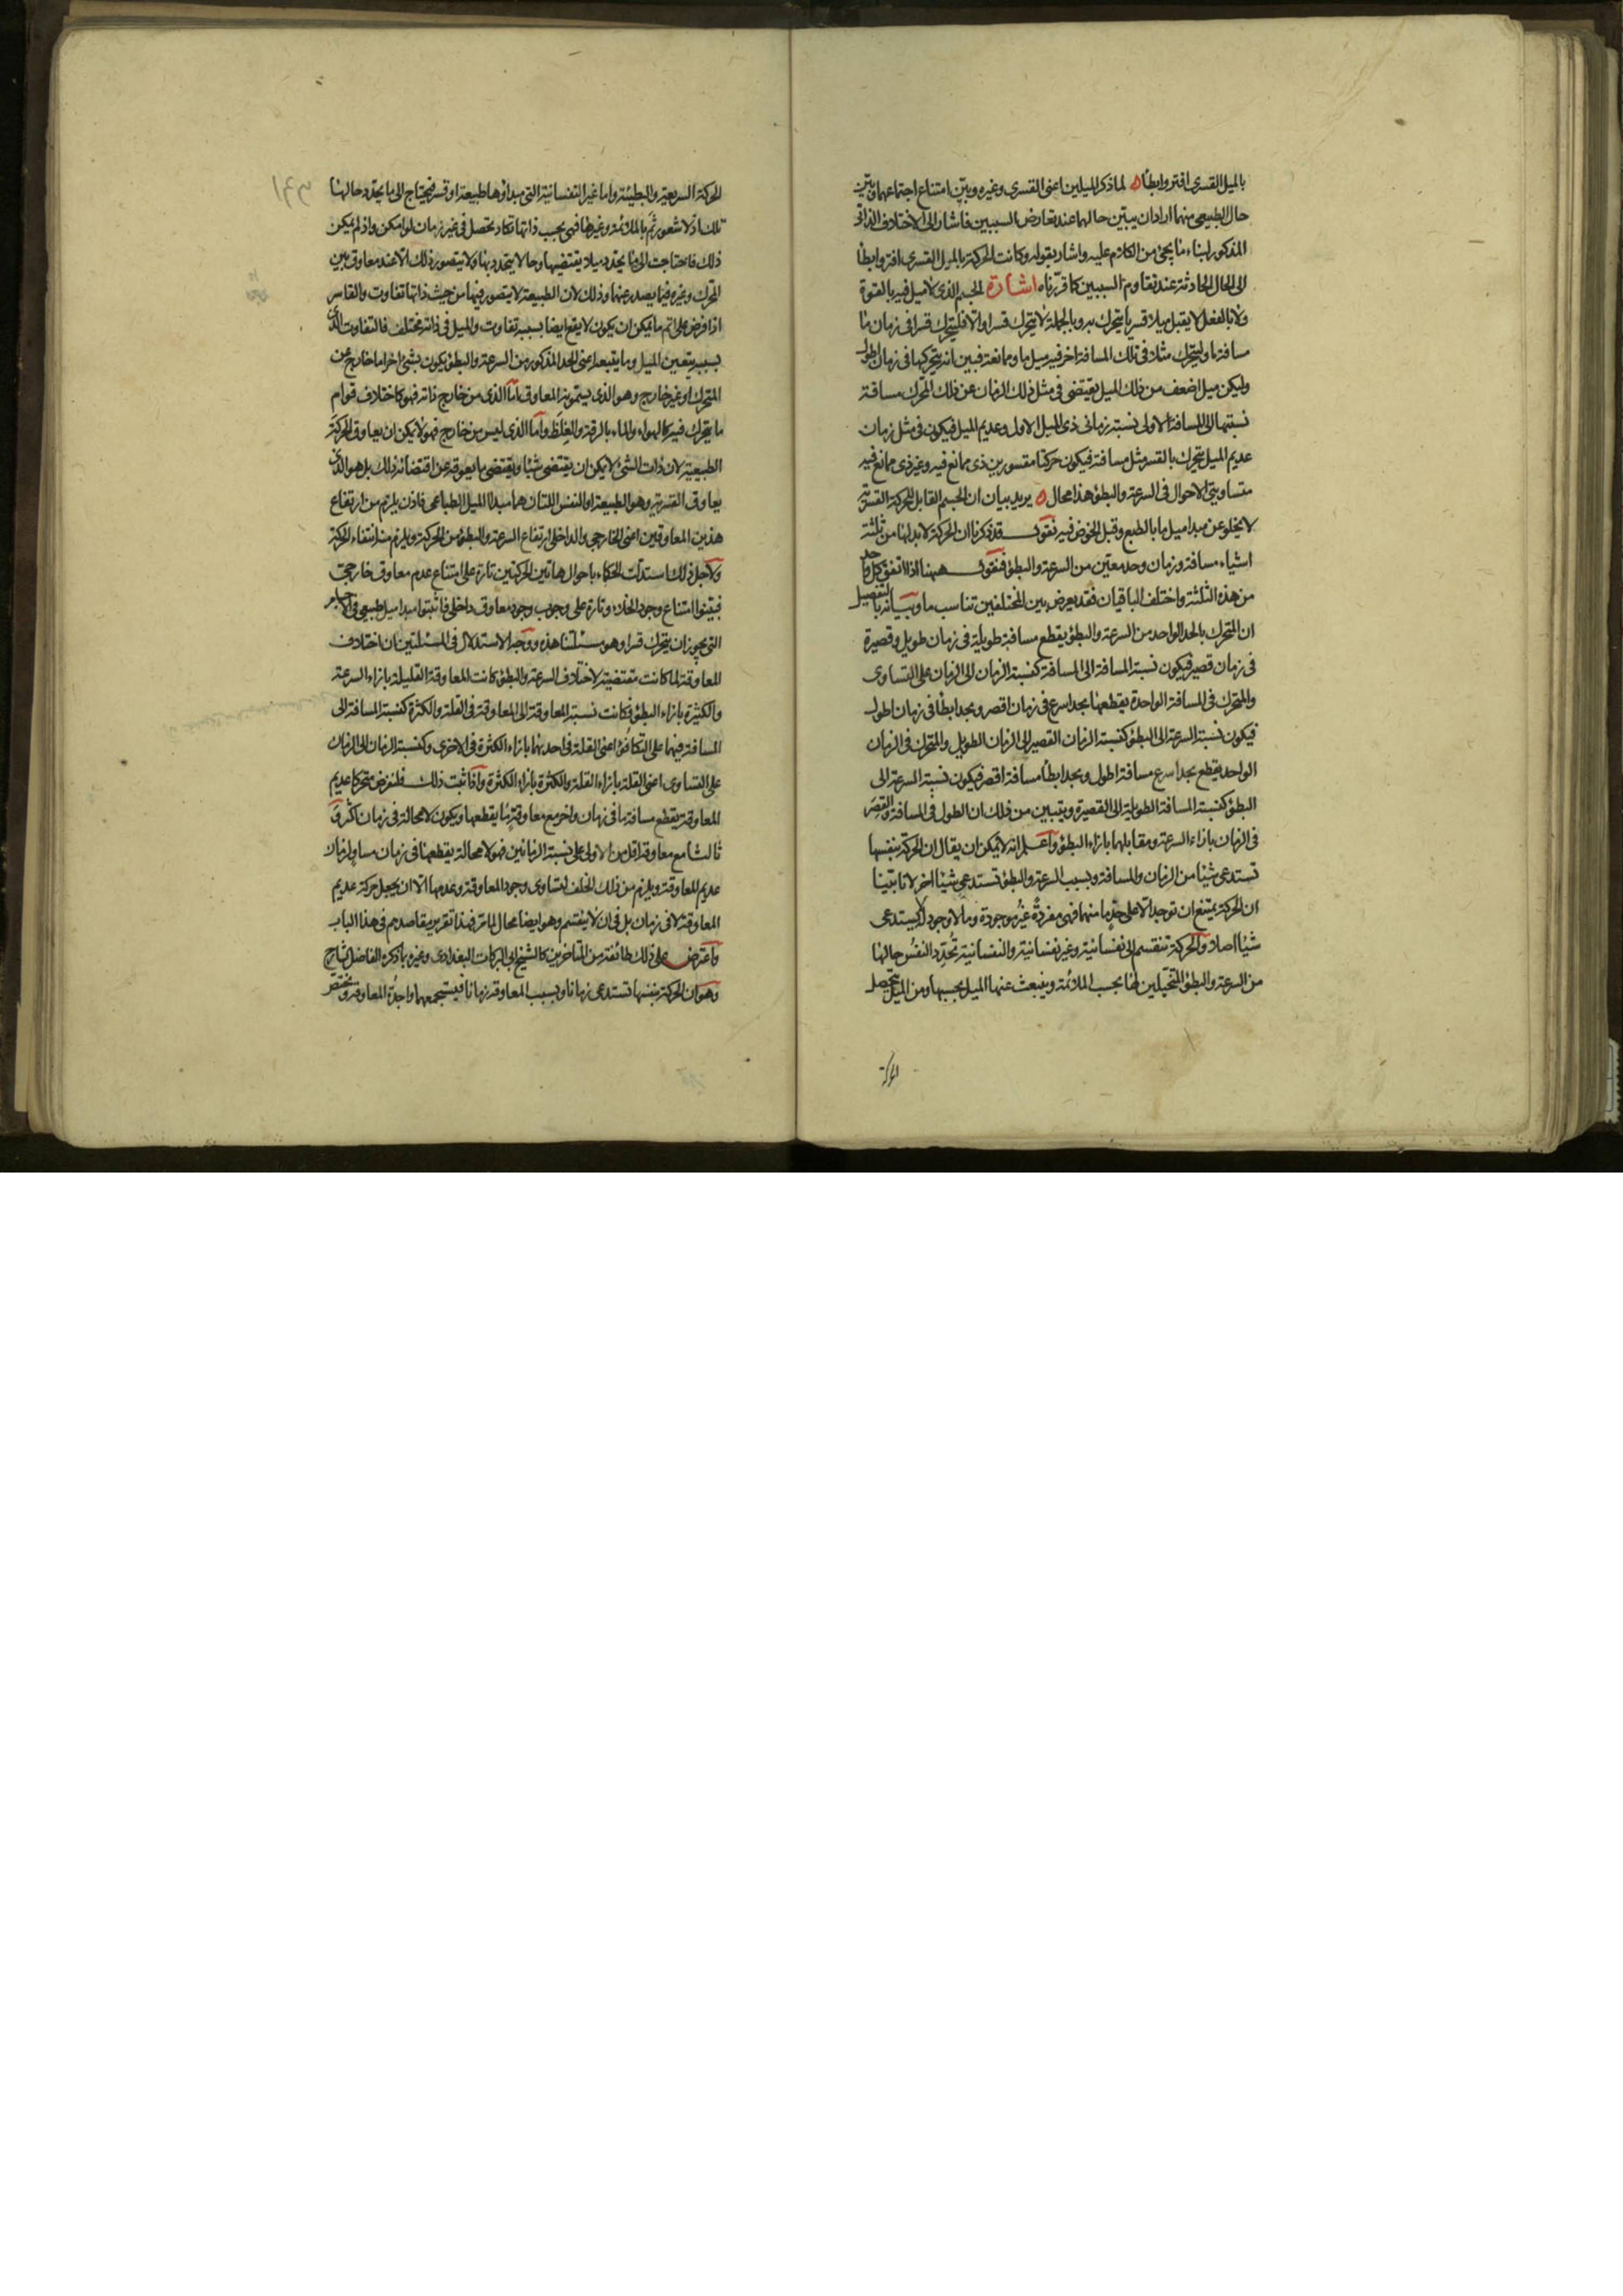 بالميل القسرى افتر وابطأ ه لما ذكر الميلين اعنى القسرى وغيره وبيّن امتناع اجتماعهما وبيّن
حال الطبيعى منهما اراد ان يبيّن حالهما عند تعارض السببين فاشار الى الاختلاف الذاتى
المذكور لبناء ما يجئ من الكلام عليه واشار بقوله وكانت الحركة بالميل القسرى افتر وابطأ
الى الحال الحادثة عند تقاوم السببين كما قررناه اشارة الجسم الذى لا ميل فيه بالقوة
ولا بالفعل لا يقبل ميلا قسريا يتحرك به وبالجملة لا يتحرك قسرا والا فليتحرك قسرا فى زمان ما
مسافة ما وليتحرك مثلا فى تلك المسافة اخر فيه ميل ما وممانعة فبين انه يتحركها فى زمان اطول
وليكن ميل اضعف من ذلك الميل يقتضى فى مثل ذلك الزمان عن ذلك المحرك مسافة
نسبتها الى المسافة الاولى نسبة زمانى ذى الميل الاول وعديم الميل فيكون فى مثل زمان
عديم الميل يتحرك بالقسر مثل مسافته فيكون حركتا مقسورين ذى ممانع فيه وغير ذى ممانع فيه
متساويتى الاحوال فى السرعة والبطؤ هذا محال ه يريد بيان ان الجسم القابل للحركة القسرية
لا يخلو عن مبدا ميل ما بالطبع وقبل الخوض فيه نقول قد ذكرنا ان الحركة لا بد لها من ثلثة
اشياء مسافة وزمان وحد معين من السرعة والبطؤ فنقول ههنا اذا اتفق كل واحد
من هذه الثلثة واختلف الباقيان فقد يعرض بين المختلفين تناسب ما وبيانه بالتفصيل
ان المتحرك بالحد الواحد من السرعة والبطؤ يقطع مسافة طويلة فى زمان طويل وقصيرة
فى زمان قصير فيكون نسبة المسافة الى المسافة كنسبة الزمان الى الزمان على التساوى
والمتحرك فى المسافة الواحدة يقطعها بحد اسرع فى زمان اقصر وبحد ابطأ فى زمان اطول
فيكون نسبة السرعة الى البطؤ كنسبة الزمان القصير الى الزمان الطويل والمتحرك فى الزمان
الواحد يقطع بحد اسرع مسافة اطول وبحد ابطأ مسافة اقصر فيكون نسبة السرعة الى
البطؤ كنسبة المسافة الطويلة الى القصيرة ويتبين من ذلك ان الطول فى المسافة والقصر
فى الزمان بازاء السرعة ومقابلهما بازاء البطؤ واعلم انه لا يمكن ان يقال ان الحركة بنفسها
تستدعى شيئا من الزمان والمسافة وبسبب السرعة والبطؤ تستدعى شيئا اخر لانا بيّنا
ان الحركة يمتنع ان توجد الا على حد ما منهما فهى مفردة غير موجودة وما لا وجود له لا يستدعى
شيئا اصلا والحركة تنقسم الى نفسانية وغير نفسانية والنفسانية تحدد النفس حالها
من السرعة والبطؤ المتخيلين لها بحسب الملائمة وينبعث عنها الميل بحسبها ومن الميل تحصل
الحركة
الحركة السريعة والبطيئة واما غير النفسانية التى مبداؤها طبيعة او قسر فيحتاج الى ما يحدد حالها
تلك اذ لا شعور ثم بالملائمة وغيرها فهى بحسب ذاتها تكاد تحصل فى غير زمان لو امكن واذ لم يمكن
ذلك فاحتاجت الى ما يحدد ميلا يقتضيها وحالا يتحدد بها ولا يتصور ذلك الا عند معاوق بين
المحرك وغيره فيما يصدر عنهما وذلك لان الطبيعة لا يتصور فيها من حيث ذاتها تفاوت والقاسر
اذا فرض على اتم ما يمكن ان يكون لا يقع ايضا بسببه تفاوت والميل فى ذاته مختلف فالتفاوت الذى
بسببه يتعين الميل وما يتبعه اعنى الحد المذكور من السرعة والبطؤ يكون بشئ اخر اما خارج عن
المتحرك او غير خارج وهو الذى يسمونه المعاوق اما الذى من خارج ذاته فهو كاختلاف قوام
ما يتحرك فيه كالهواء والماء بالرقة والغلظ واما الذى ليس من خارج فهو لا يمكن ان يعاوق الحركة
الطبيعية لان ذات الشئ لا يمكن ان يقتضى شيئا ويقتضى ما يعوقه عن اقتضائه ذلك بل هو الذى
يعاوق القسرية وهو الطبيعة او النفس اللتان هما مبدا الميل الطباعى فاذن يلزم من ارتفاع
هذين المعاوقين اعنى الخارجى والداخلى ارتفاع السرعة والبطؤ من الحركة ويلزم منه انتفاء الحركة
ولاجل ذلك استدلت الحكماء باحوال هاتين الحركتين تارة على امتناع عدم معاوق خارجى
فبيّنوا امتناع وجود الخلاء وتارة على وجوب وجود معاوق داخلى فاثبتوا مبدا ميل طبيعى فى الاجسام
التى يجوز ان يتحرك قسرا وهو مسئلتنا هذه ووجه الاستدلال فى المسئلتين ان اختلاف
المعاوقة لما كانت مقتضية لاختلاف السرعة والبطؤ كانت المعاوقة القليلة بازاء السرعة
والكثيرة بازاء البطؤ فكانت نسبة المعاوقة الى المعاوقة فى القلة والكثرة كنسبة المسافة الى
المسافة فيهما على التكافؤ اعنى القلة فى احدهما بازاء الكثرة فى الاخرى وكنسبة الزمان الى الزمان
على التساوى اعنى القلة بازاء القلة والكثرة بازاء الكثرة واذا ثبت ذلك فلنفرض متحركا عديم
المعاوقة يقطع مسافة ما فى زمان واخر مع معاوقة ما يقطعها ويكون لا محالة فى زمان اكثر و
ثالثا مع معاوقة اقل من الاولى على نسبة الزمانين فهو لا محالة يقطعها فى زمان مساو لزمان
عديم المعاوقة ويلزم من ذلك الخلف لتساوى وجود المعاوقة وعدمها الا ان يجعل حركة عديم
المعاوقة لا فى زمان بل فى ان لا ينقسم وهو ايضا محال لما مر فهذا تقرير مقاصدهم فى هذا الباب
واعترض على ذلك طائفة من المتاخرين كالشيخ ابى البركات البغدادى وغيره بما ذكره الفاضل الشارح
وهو ان الحركة بنفسها تستدعى زمانا وبسبب المعاوقة زمانا فيستجمعهما واجدة المعاوقة ويختص